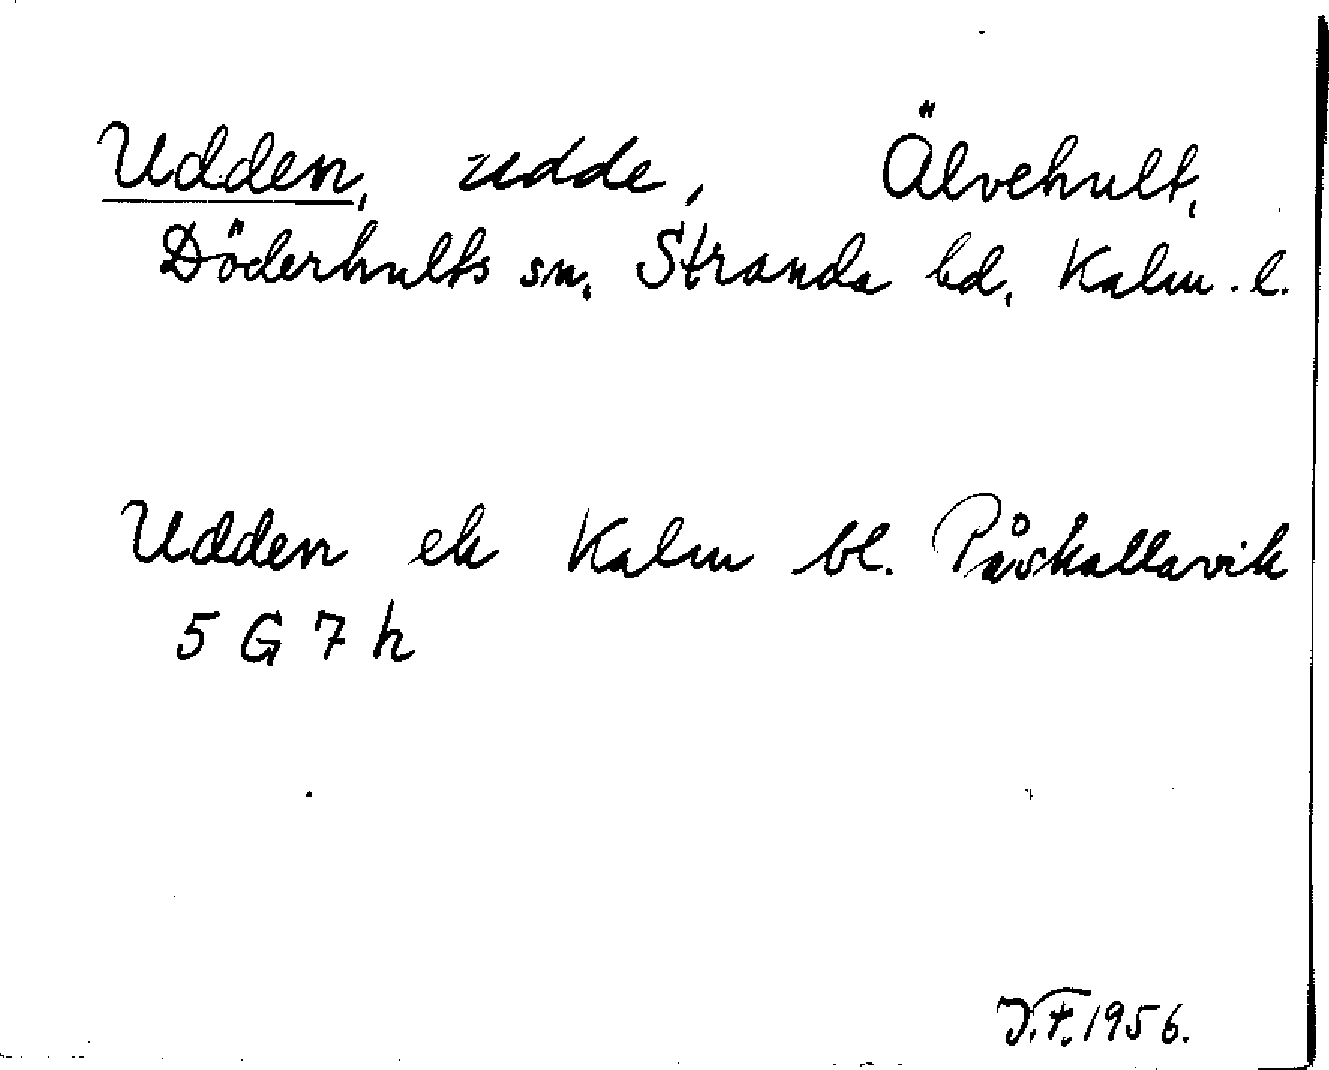 Udden, udde, Älvehult,
Döderhults sn, Stranda hd, Kalm. l.
Udden ek Kalm bl. Påskallavik
5 G 7 h
J.F. 1956.